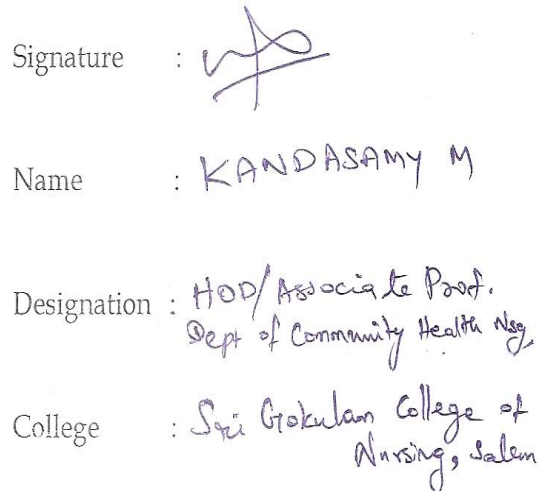 Signature :
Name : KANDASAMY M
Designation : HOD/Associate Prof.
Dept of Community Health Nsg,
College : Sri Gokulam College of
Nursing, Salem